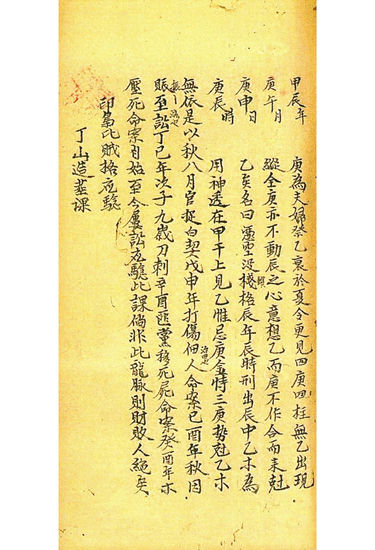 甲辰年
庚午月
庚申日
庚辰時
庚為夫婦棨乙衰於夏令更見四庚四柱無乙出現
縱全庚亦不動辰之心意想乙而庚不作合而来尅
乙矣名曰憑空没機格辰年辰時刑出辰中乙木為
用神透在甲干上見乙惟忌庚金恃三庚势尅乙木
無依是以秋八月官捉白契戊申年打傷佃人命案己酉年秋因
賬至訟丁巳年次子九歲刀刺辛酉匪黨移死屍命案癸酉年木
壓死命案自始至今屢訟夜驗此課倘非此龍脉則財敗人絕矣
印為比賊格夜驗
丁山造葬課